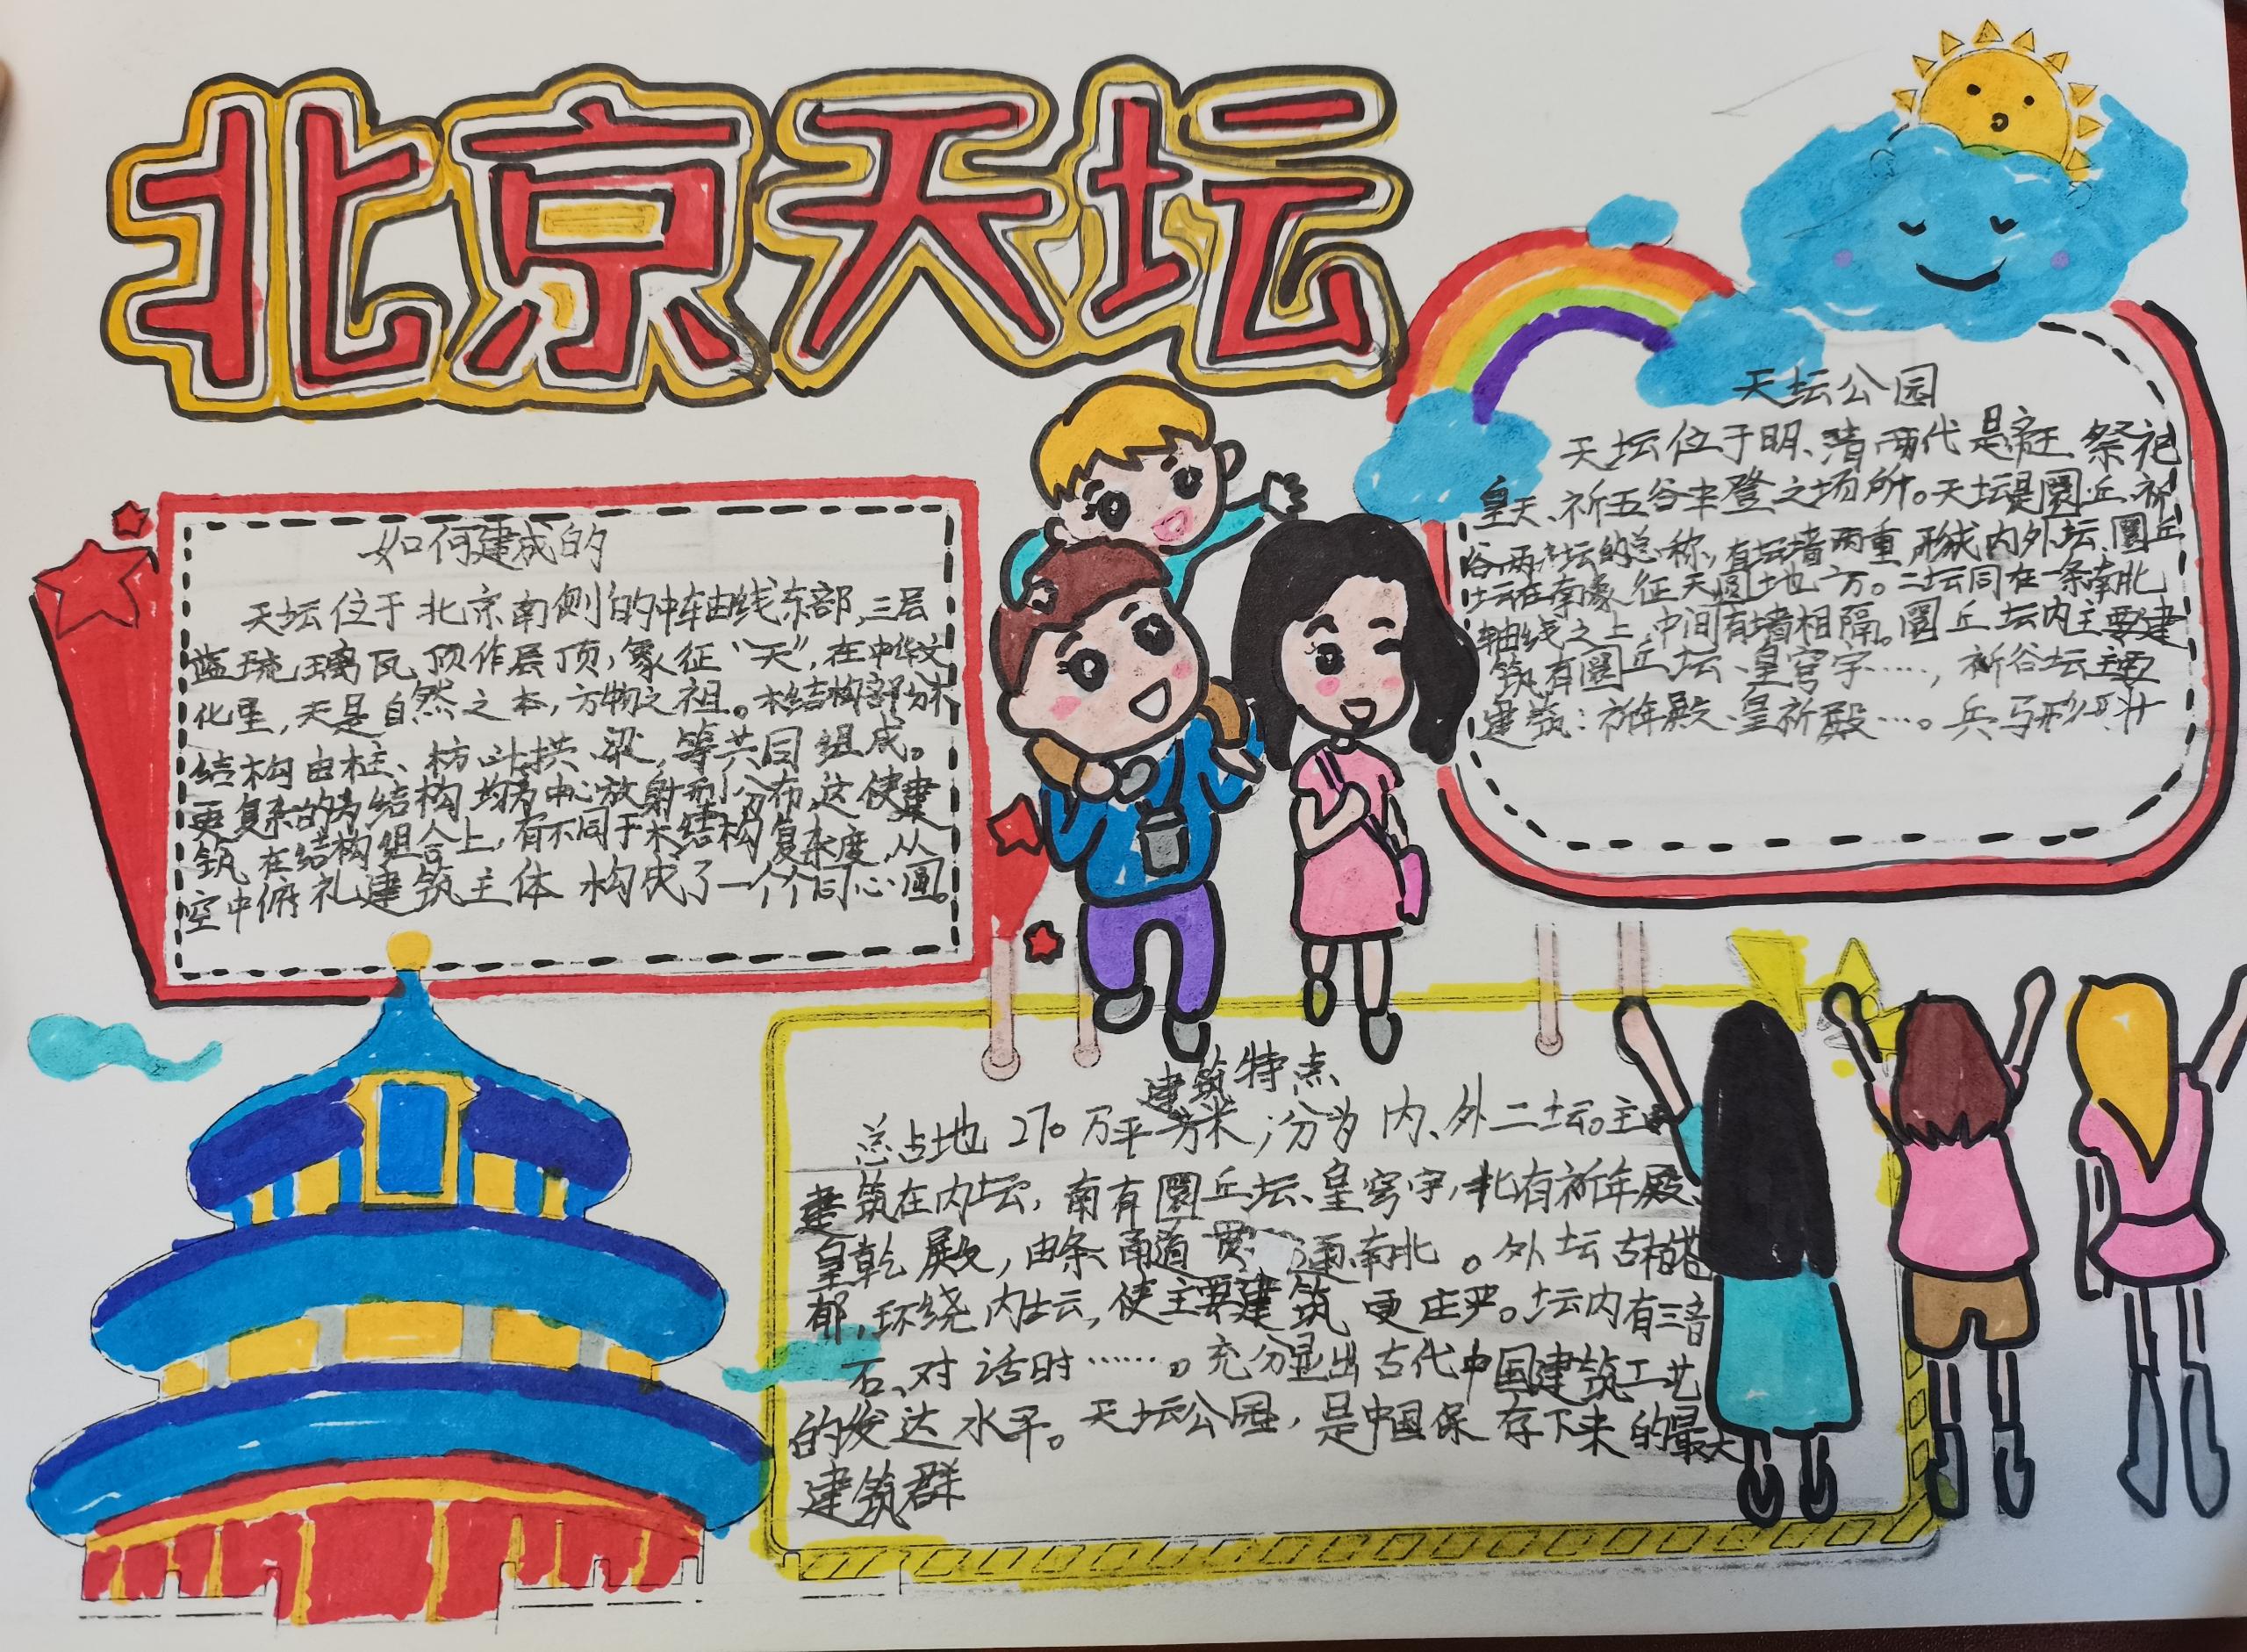 北京天坛
如何建成的
天坛位于北京南侧的中轴线东部,三层
蓝琉璃瓦顶作层顶,象征“天”,在中华文
化里,天是自然之本,万物之祖。木结构部分木
结构由柱、枋 斗拱、梁,等共同组成。
更复杂的为结构均为中心放射형分布,这使建
筑在结构组合上,有不同于木结构复杂度,从
空中俯 建筑主体 构成了一个个同心圆。
天坛公园
天坛位于明、清两代是帝王、祭祀
皇天、祈五谷丰登之场所。天坛是圜丘、祈
谷两坛的总称,有坛墙两重,形成内外坛、圜丘
坛在南象征天圆地方。二坛同在一条南北
轴线之上,中间有墙相隔。圜丘坛内主要建
筑有圜丘坛、皇穹宇……,祈谷坛主要
建筑:祈年殿、皇祈殿…。兵马
建筑特点
总占地270万平方米,分为内、外二坛。主
建筑在内坛,南有圜丘坛、皇穹宇,北有祈年殿、
皇乾殿,由条甬道贯 通南北。外坛古柏苍
郁,环绕内坛,使主要建筑更庄严。坛内有三音
石、对话时……。充分显出古代中国建筑工艺
的发达水平。天坛公园,是中国保存下来的最大
建筑群